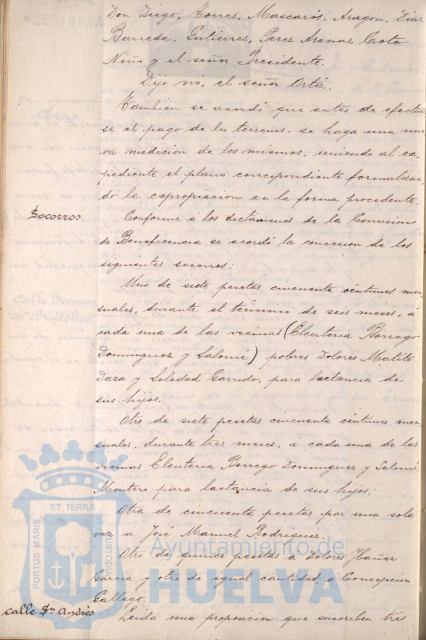 Don Diego, Torres, Mascarós, Aragón, Díaz
Barreda, Gutierrez, Perez Arenas, Coto
Niño y el señor Presidente.
Dijo nó, el señor Ortiz.
Tambien se acordó que antes de efectuar
se el pago de los terrenos, se haga una nue
va medicion de los mismos, uniendo al ex-
pediente el plano correspondiente formalizan
do la expropiacion en la forma procedente.
Socorros
Conforme á los dictámenes de la Comision
de Beneficencia se acordó la concesion de los
siguientes socorros:
Uno de siete pesetas cincuenta céntimos men
suales, durante el término de seis meses, á
cada una de las vecinas (Eleuteria Borrego
Dominguez y Salomé) pobres Dolores
Daza y Soledad Garrido, para lactancia de
sus hijos.
Otro de siete pesetas cincuenta céntimos men
suales, durante tres meses, á cada una de las
vecinas Eleuteria Borrego Dominguez y Salomé
Montero para lactancia de sus hijos.
Otra de cincuenta pesetas por una sola
vez a José Manuel Rodriguez.
Otro de quince pesetas á Dolores Ibañez
Garcia y otro de igual cantidad á Concepcion
Gallego.
calle Sn Andrés
Leida una proposicion que suscriben tres
PORTUS MARIS ET TERRAE CUSTODIA
Ayuntamiento de
HUELVA